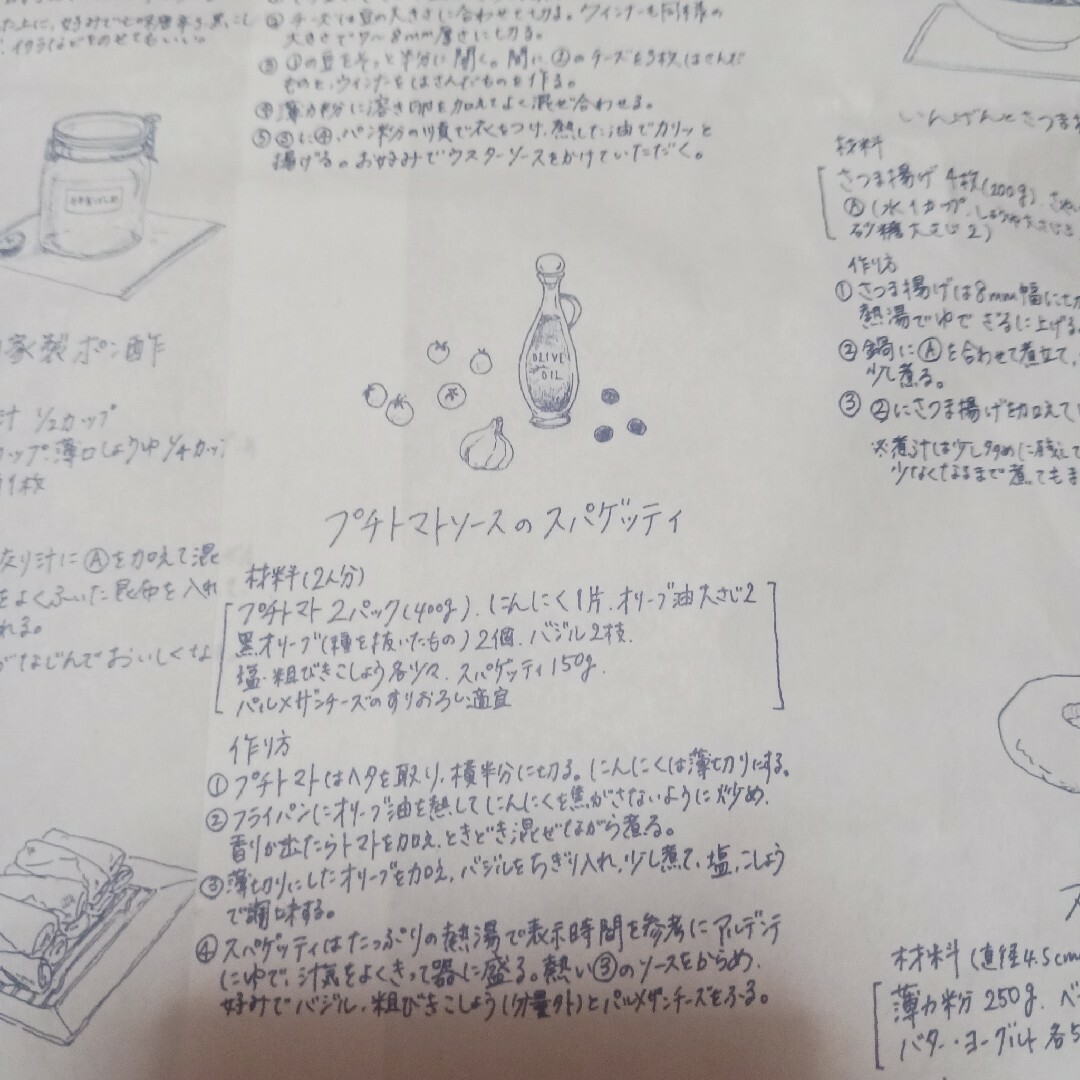 チーズは豆の大きさに合わせて切る。ウィンナーも同様の
大きさで7〜8mm厚さに切る。
③ ①の豆をそっと半分に開く。間に②のチーズを3枚はさんだ
ものと、ウィンナーをはさんだものを作る。
④ 薄力粉に溶き卵を加えてよく混ぜ合わせる。
⑤ ③に④、パン粉の順で衣をつけ、熱した油でカリッと
揚げる。お好みでウスターソースをかけていただく。
家製ポン酢
汁 1/2カップ
カップ、薄口しょうゆ1/4カップ
1枚
り汁にⒶを加えて混
をよくふいた昆布を入れ
れる。
がなじんでおいしくな
OLIVE
OIL
プチトマトソースのスパゲッティ
材料(2人分)
プチトマト2パック(400g)、にんにく1片、オリーブ油大さじ2
黒オリーブ(種を抜いたもの)2個、バジル2枝、
塩・粗びきこしょう各少々、スパゲッティ150g、
パルメザンチーズのすりおろし適宜
作り方
① プチトマトはヘタを取り、横半分に切る。にんにくは薄切りにする。
② フライパンにオリーブ油を熱してにんにくを焦がさないように炒め、
香りが出たらトマトを加え、ときどき混ぜながら煮る。
③ 薄切りにしたオリーブを加え、バジルをちぎり入れ、少し煮て、塩、こしょう
で調味する。
④ スパゲッティはたっぷりの熱湯で表示時間を参考にアルデンテ
にゆで、汁気をよくきって器に盛る。熱い③のソースをからめ、
好みでバジル、粗びきこしょう(分量外)とパルメザンチーズをふる。
いんげんとさつま
材料
さつま揚げ4枚(200g)、さやい
Ⓐ(水1カップ、しょうゆ大さじ
砂糖大さじ2)
作り方
① さつま揚げは8mm幅に切
熱湯でゆでざるに上げる
② 鍋にⒶを合わせて煮立て、
少し煮る。
③ ②にさつま揚げを加えて
※煮汁は少し多めに残して
少なくなるまで煮てもま
材料(直径4.5cm
薄力粉250g、ベ
バター・ヨーグルト各5